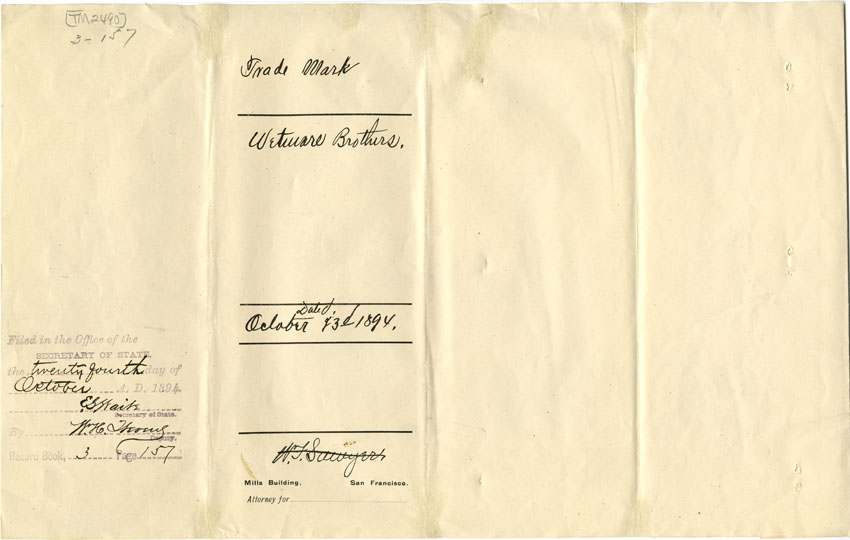 TM2490
3-157
Trade Mark
Wetmore Brothers.
Dated.
October 23d 1894.
Mills Building, San Francisco.
Attorney for
Filed in the Office of the
SECRETARY OF STATE,
the twenty fourth day of
October A. D. 1894.
E.G. Waite
Secretary of State.
By W.H.
Deputy.
Record Book, 3 Page 157